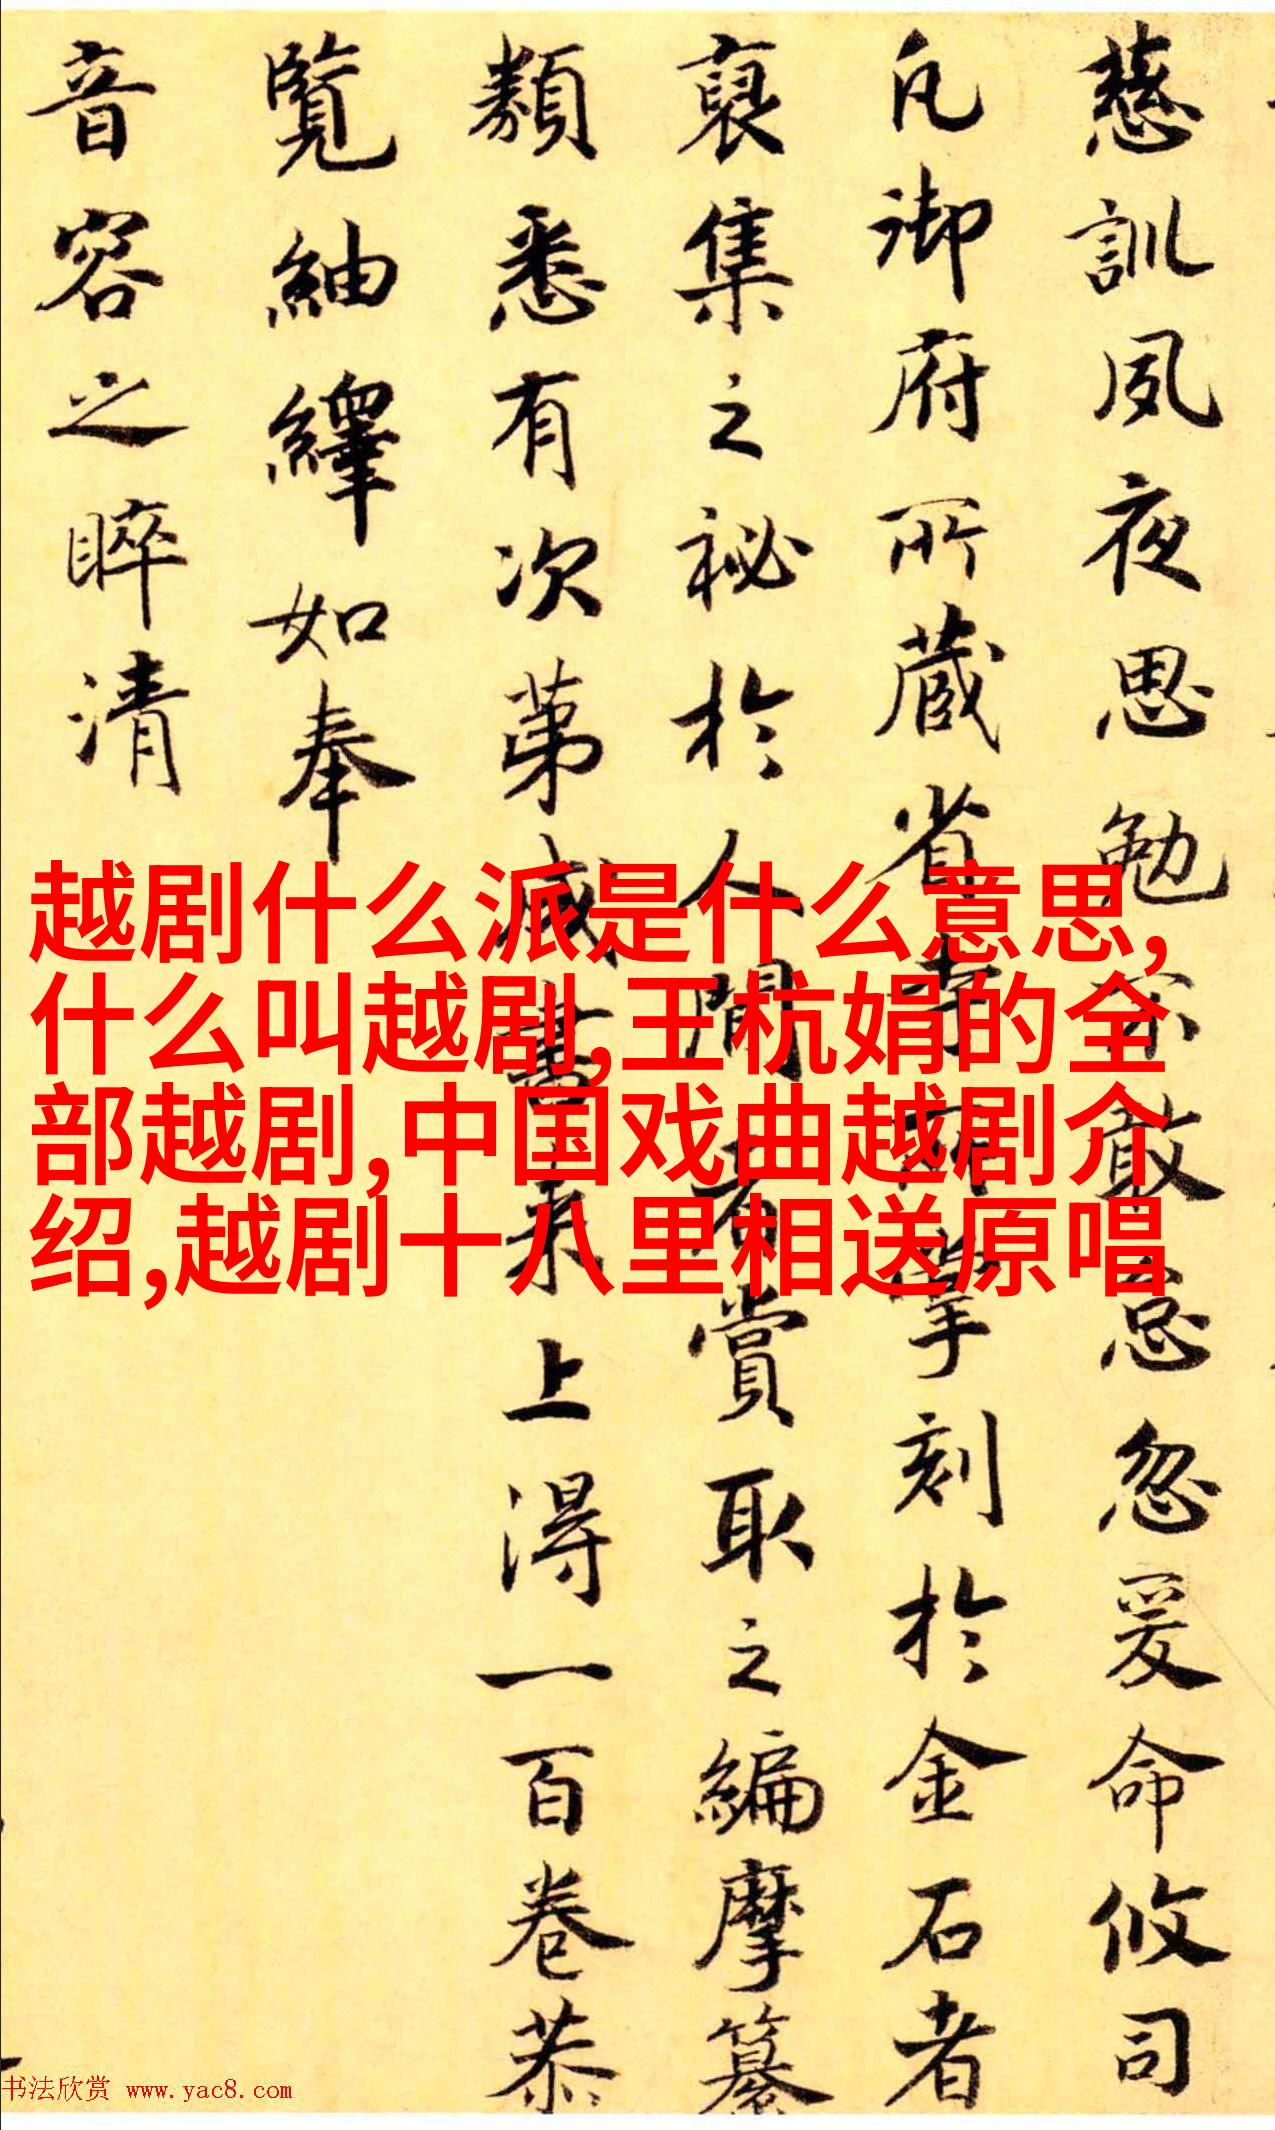 慈訓夙夜思勉不敢怠忽爰命攸司
凡御府所蔵省寺所掌刻於金石者
裒集之祕於人間者賞取之編摩纂
類悉有次苐咸書来上淂一百卷恭
覧紬繹如奉
音容之睟清
越剧什么派是什么意思,
什么叫越剧,王杭娟的全
部越剧,中国戏曲越剧介
绍,越剧十八里相送原唱
书法欣赏 www.yac8.com